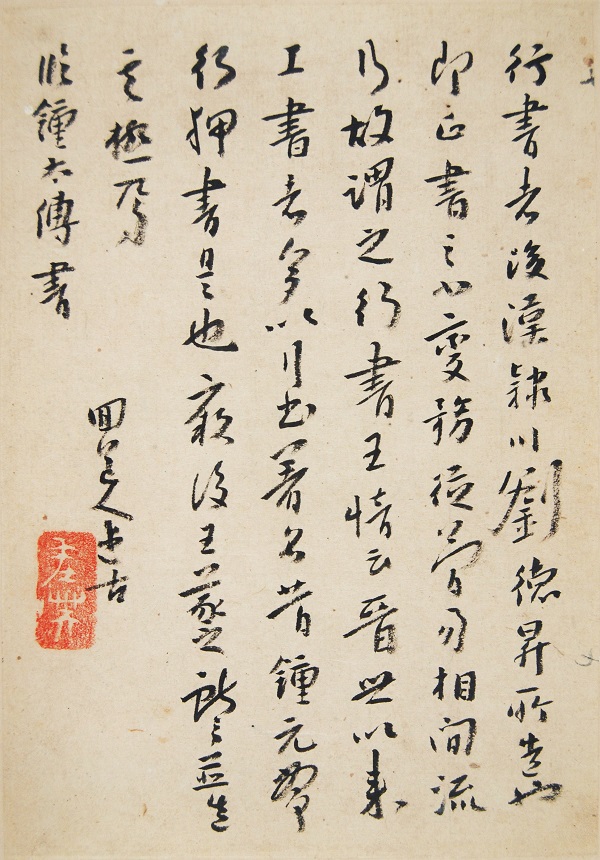 行書者後漢川劉德昇所造也
即正書之小變務從簡易相間流
行故謂之行書王愔云晉世以來
工書者多以行書著名昔鍾元常
行押書是也後王羲之獻之並造
其極焉
臨鍾太傅書
道人古